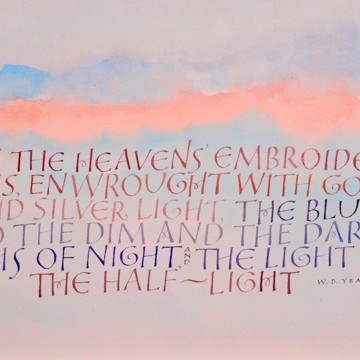 THE HEAVENS' EMBROIDE
S, ENWROUGHT WITH GO
D SILVER LIGHT, THE BLU
THE DIM AND THE DAR
HS OF NIGHT, AND THE LIGHT
THE HALF~LIGHT
W. B. YEA